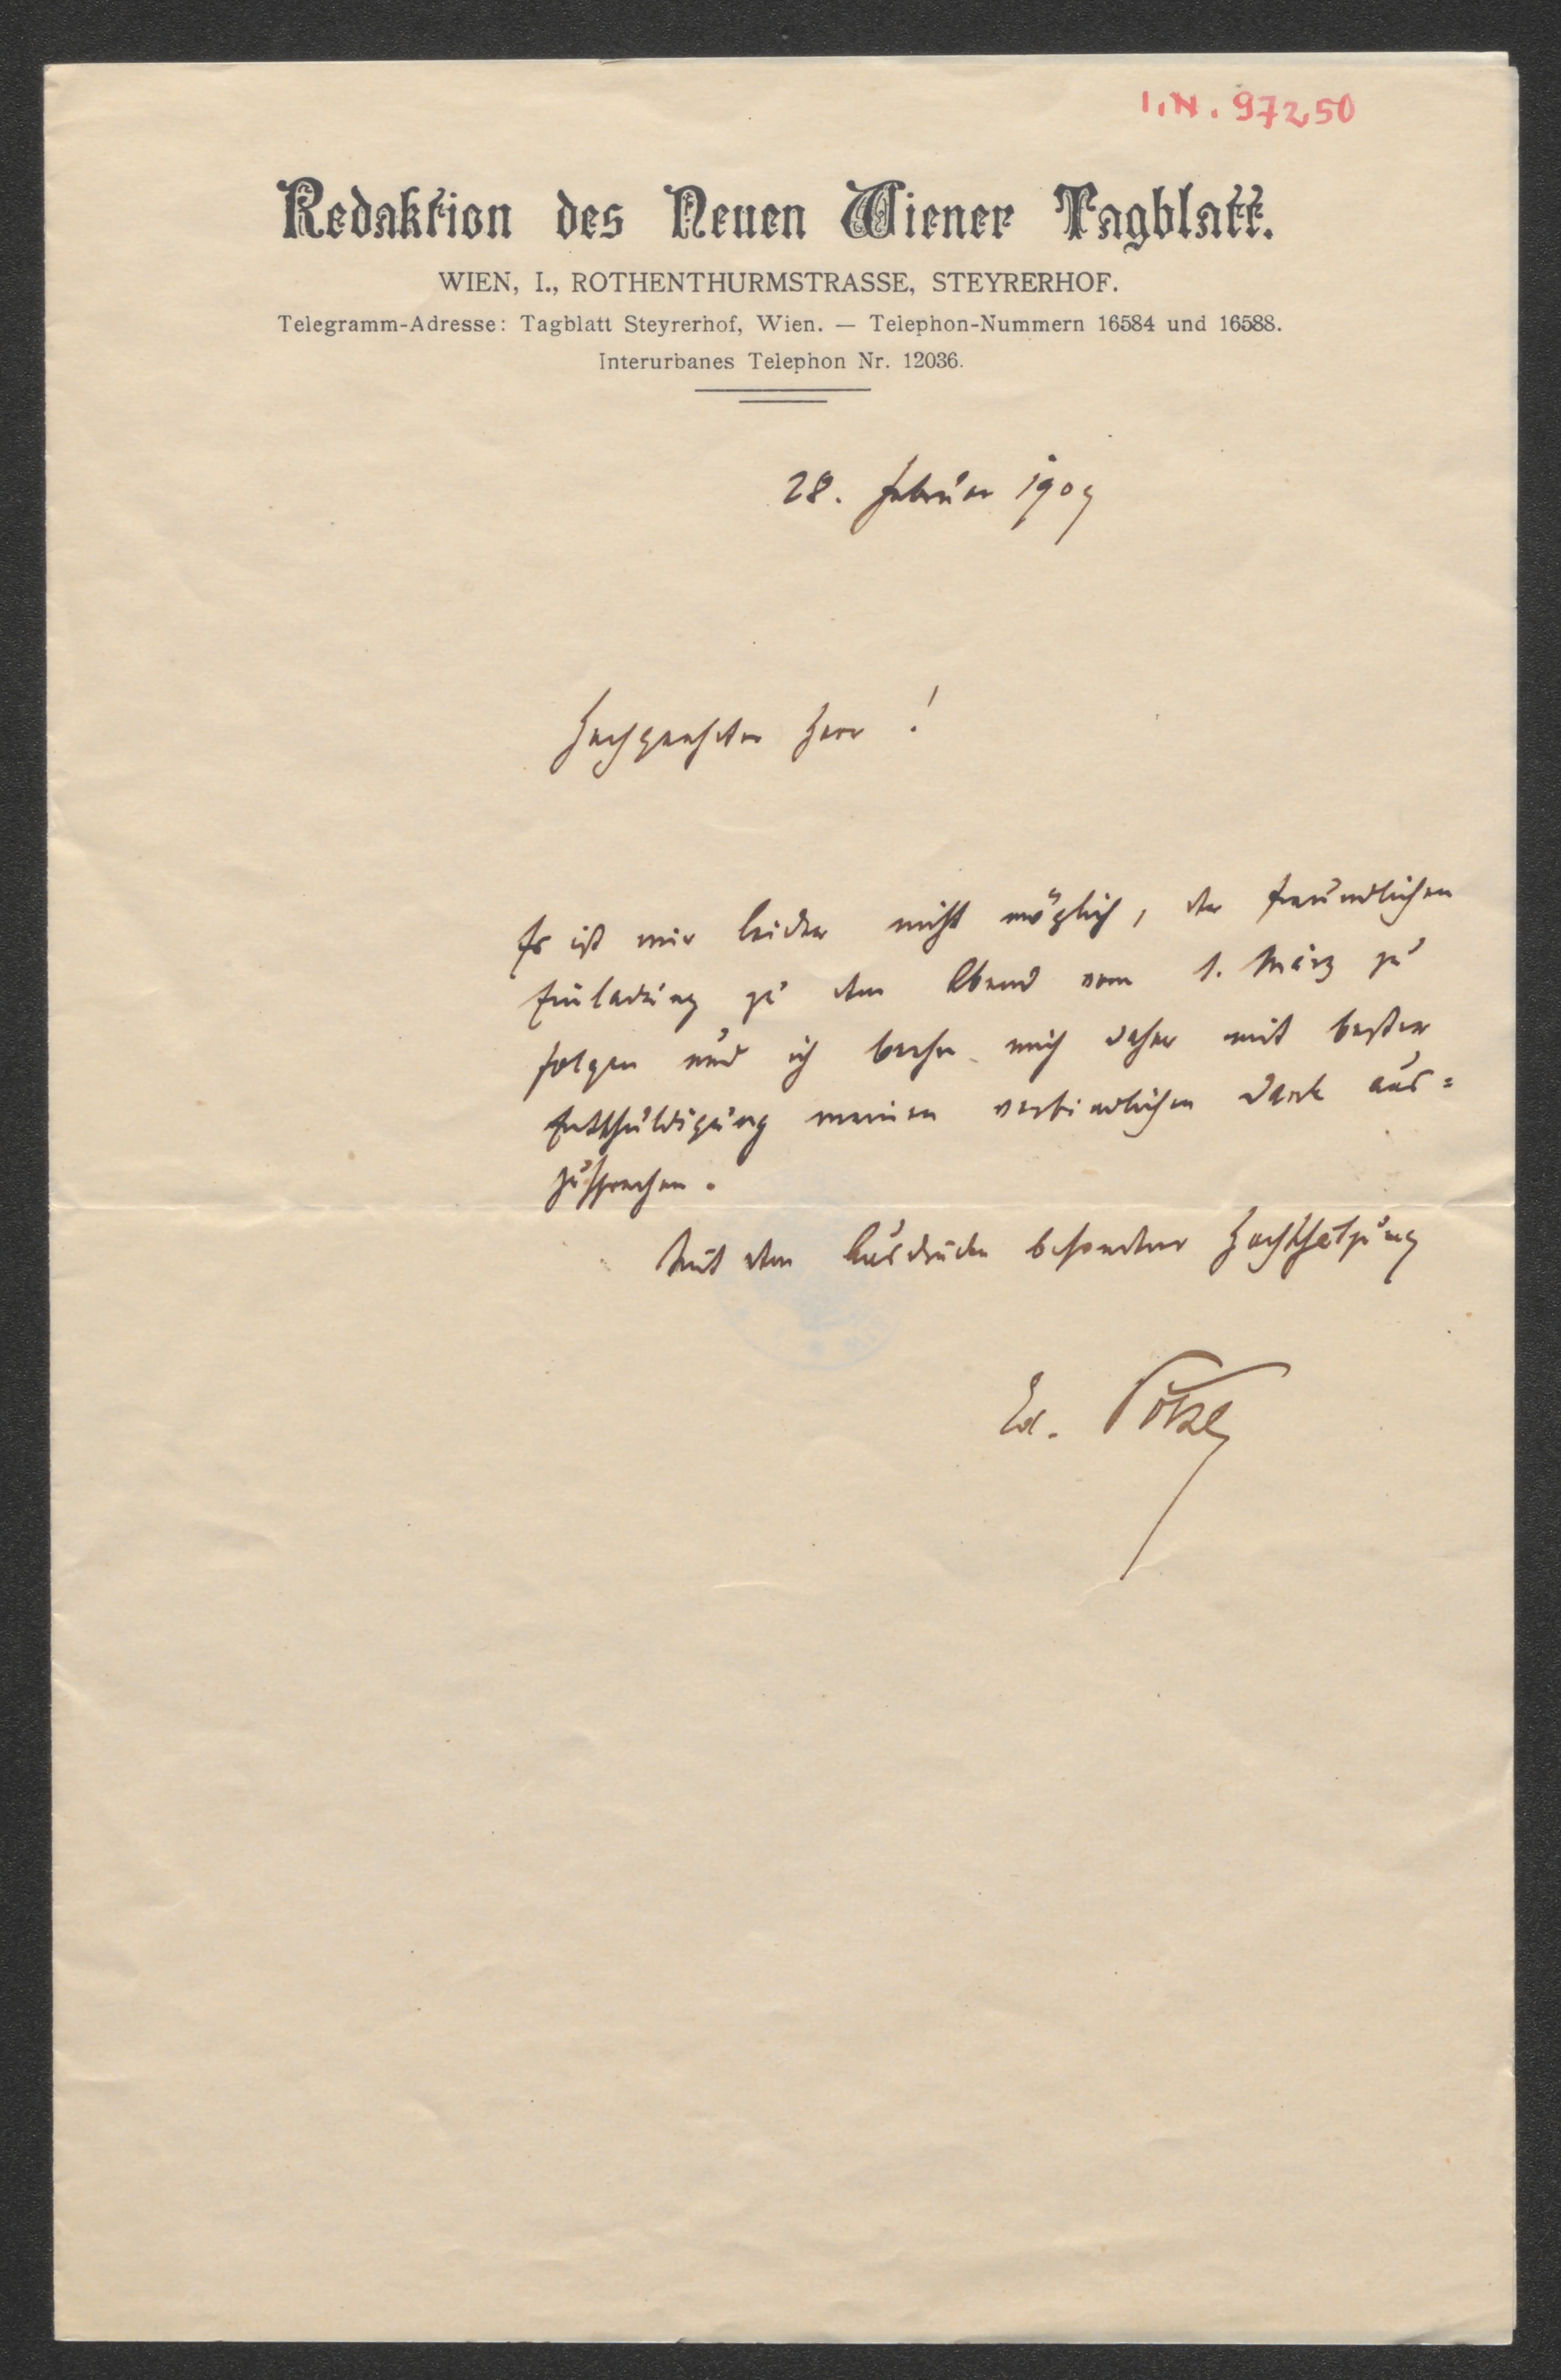 I.N. 97250
Redaktion des Neuen Wiener Tagblatt.
WIEN, I., ROTHENTHURMSTRASSE, STEYRERHOF.
Telegramm-Adresse: Tagblatt Steyrerhof, Wien. — Telephon-Nummern 16584 und 16588.
Interurbanes Telephon Nr. 12036.
28. Februar 1909
Hochgeehrter Herr!
Es ist mir leider nicht möglich, der freundlichen
Einladung zu dem Abend vom 1. März zu
folgen und ich beehre mich daher mit bester
Entschuldigung meinen verbindlichen Dank aus=
zusprechen.
Mit dem Ausdrucke besonderer Hochschätzung
Ed. Pötzl